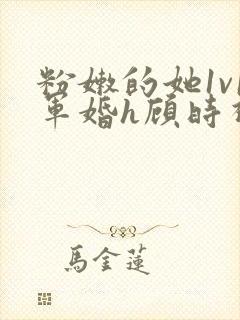 粉嫩的她1v1
军婚h顾时
馬金蓮